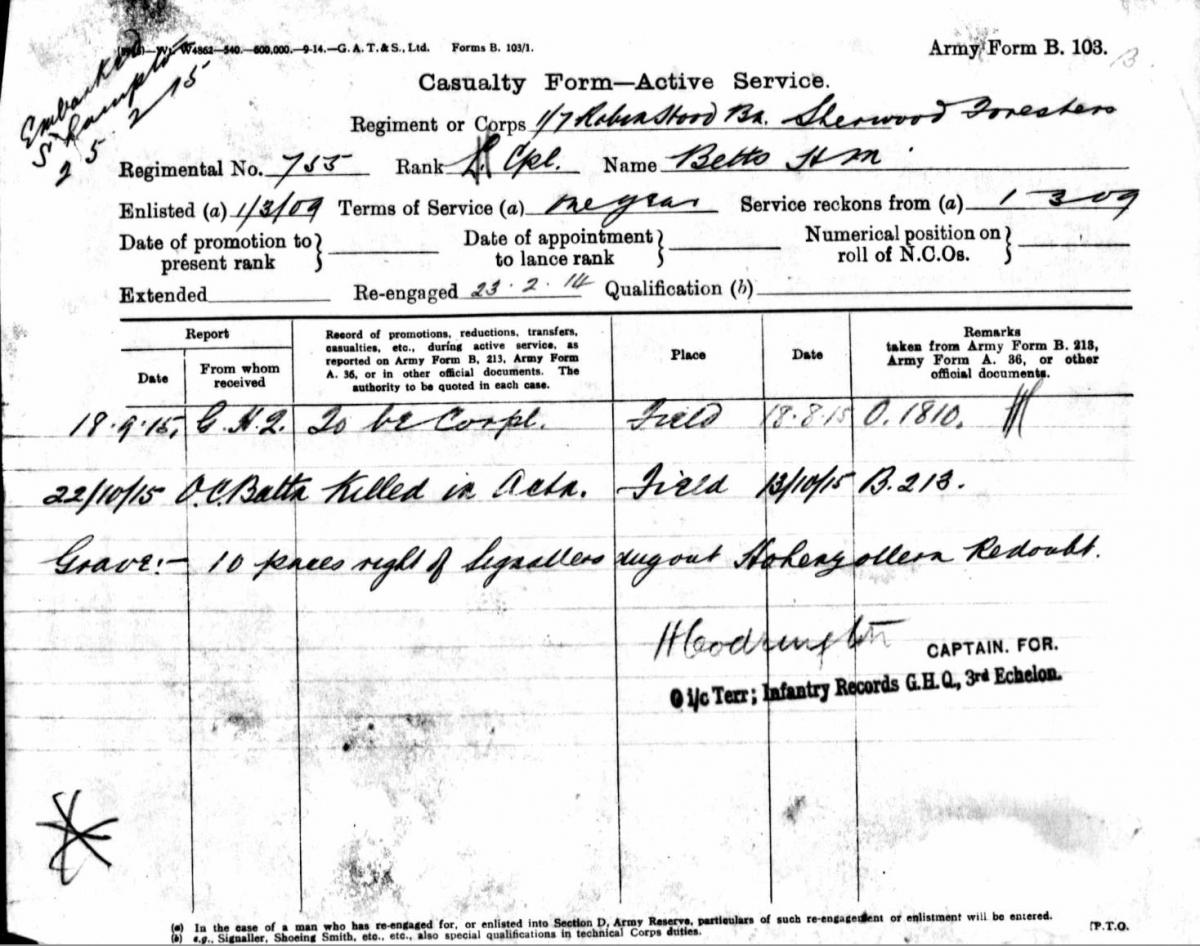 W4862—540.—600,000.—9-14.—G. A. T. & S., Ltd. Forms B. 103/1.
Army Form B. 103.
Embarked
S'hampton
25 2 15
Casualty Form—Active Service.
Regiment or Corps 1/7 Robin Hood Bn. Sherwood Foresters
Regimental No. 755 Rank Cpl. Name Betts H M
Enlisted (a) 1/3/09 Terms of Service (a) one year Service reckons from (a) 1-3-09
Date of promotion to present rank } Date of appointment to lance rank } Numerical position on roll of N.C.Os. }
Extended Re-engaged 23.2.14 Qualification (b)
Report
Date
From whom received
Record of promotions, reductions, transfers, casualties, etc., during active service, as reported on Army Form B, 213, Army Form A. 36, or in other official documents. The authority to be quoted in each case.
Place
Date
Remarks
taken from Army Form B. 213, Army Form A. 36, or other official documents.
18.9.15. G.H.Q. To be Corpl. Field 18.8.15 O.1810.
22/10/15 O.C. Battn Killed in Actn. Field 13/10/15 B.213.
Grave:- 10 paces right of Signallers dugout Hohenzollern Redoubt.
HCodrington CAPTAIN. FOR.
O i/c Terr; Infantry Records G.H.Q., 3rd Echelon.
(a) In the case of a man who has re-engaged for, or enlisted into Section D, Army Reserve, particulars of such re-engagement or enlistment will be entered.
(b) e.g., Signaller, Shoeing Smith, etc., etc., also special qualifications in technical Corps duties.
[P.T.O.